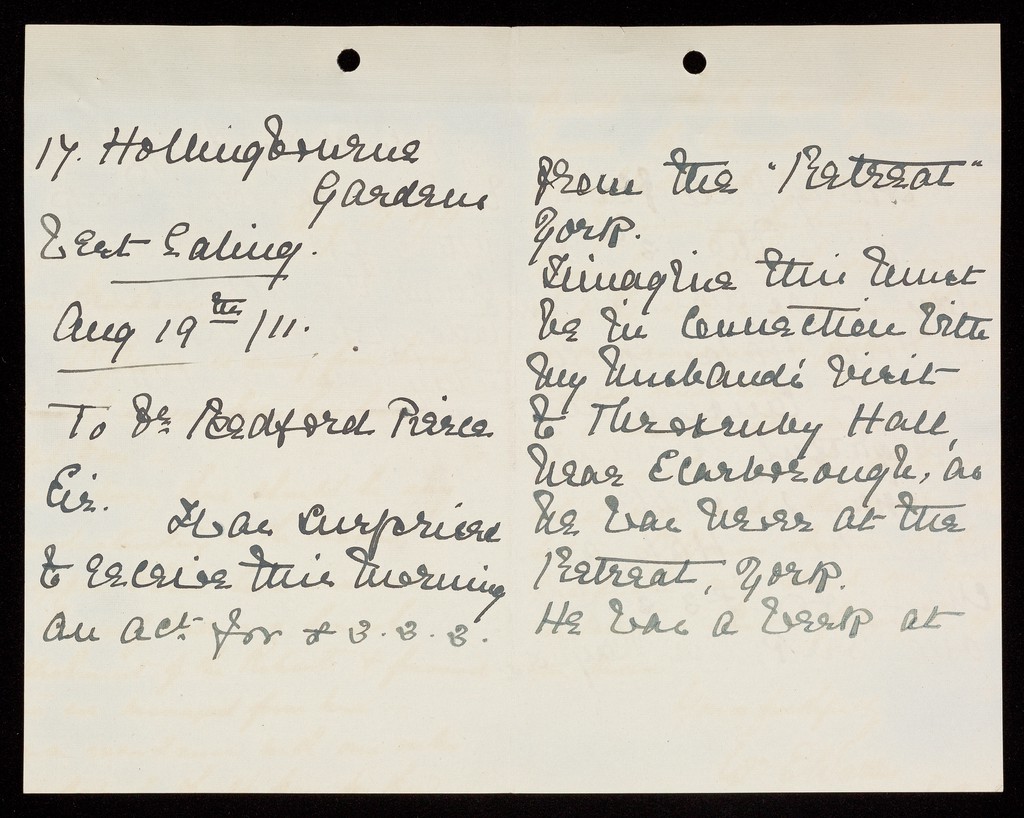 17. Hollingbourne
Gardens
West Ealing.
Aug 19th/11.
To Dr Bedford Pierce
Sir.
I was surprised
to receive this morning
an acct for £3.3.3.
from the "Retreat"
York.
I imagine this must
be in connection with
my husband's visit
to Throxenby Hall,
near Scarborough, as
he was never at the
Retreat, York.
He was a week at